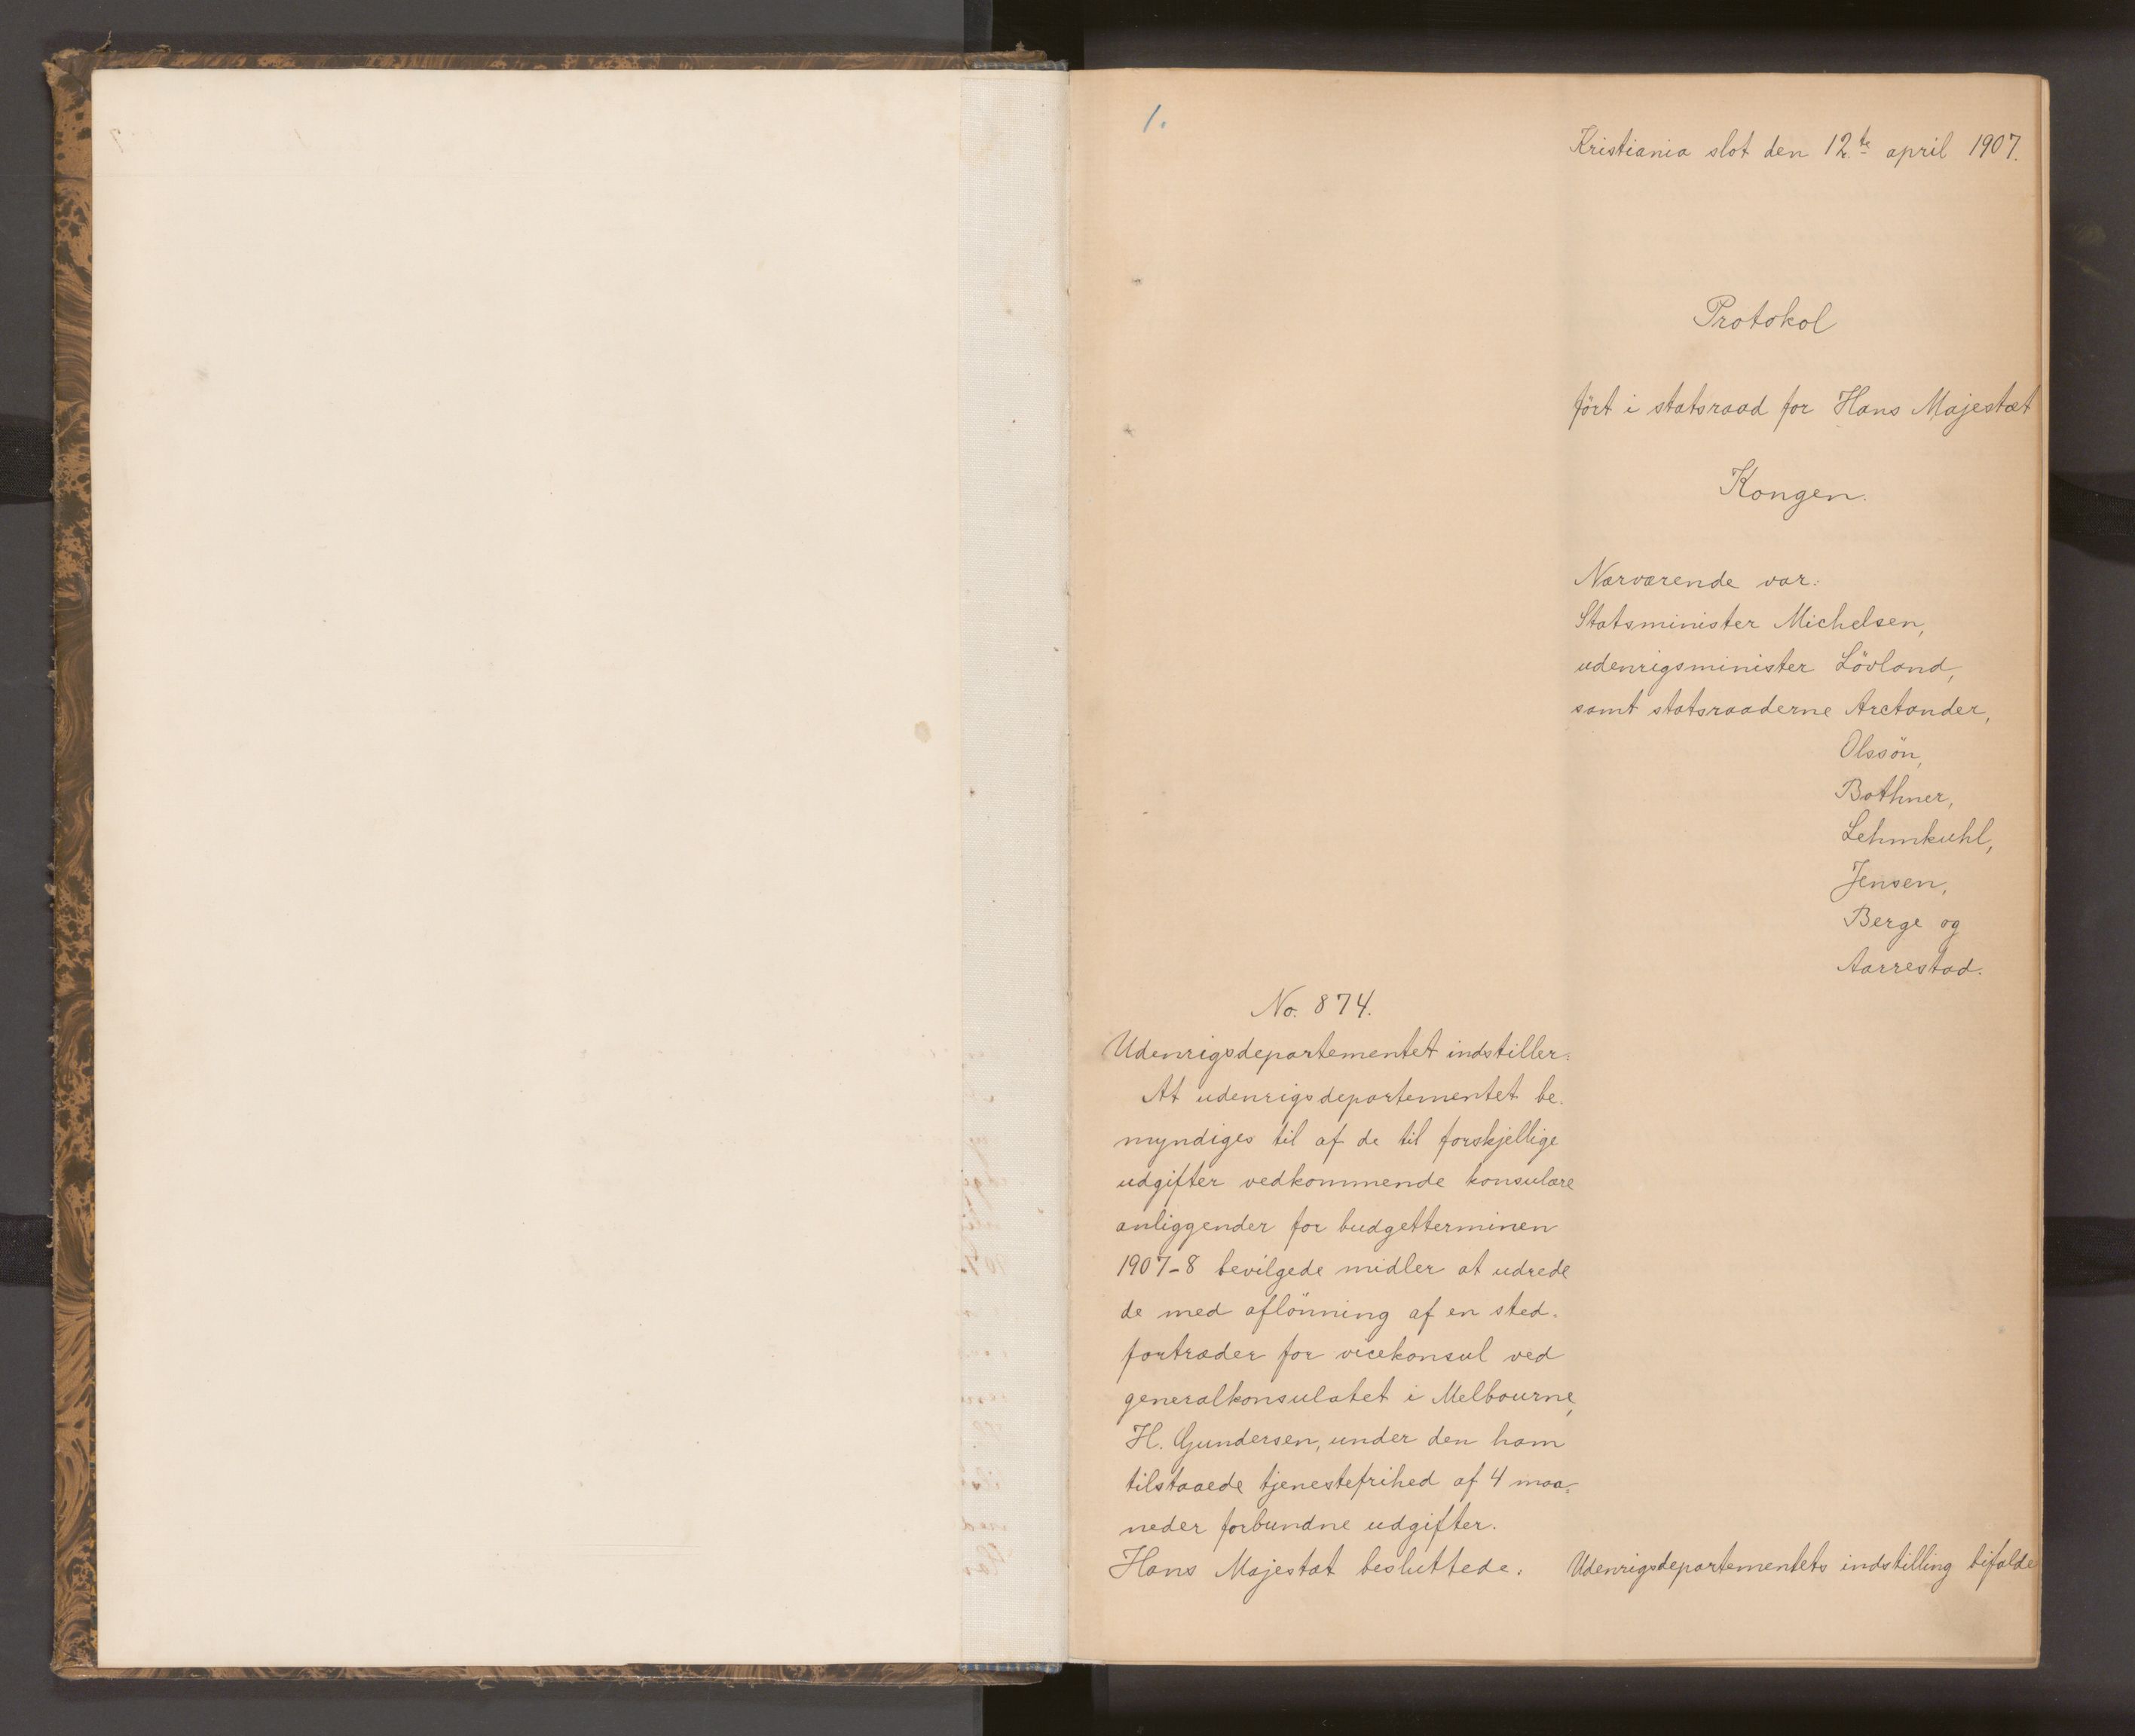 1.
Kristiania slot den 12.te april 1907.
Protokol
ført i statsraad for Hans Majestæt
Kongen.
Nærværende var:
Statsminister Michelsen,
udenrigsminister Lövland,
samt statsraaderne Arctander,
Olssön,
Bothner,
Lehmkuhl,
Jensen,
Berge og
Aarrestad.
No. 874.
Udenrigsdepartementet indstiller:
At udenrigsdepartementet be-
myndiges til af de til forskjellige
udgifter vedkommende konsulære
anliggender for budgetterminen
1907-8 bevilgede midler at udrede
de med aflönning af en sted-
fortræder for vicekonsul ved
generalkonsulatet i Melbourne,
H. Gundersen, under den ham
tilstaaede tjenestefrihed af 4 maa-
neder forbundne udgifter.
Hans Majestæt besluttede: Udenrigsdepartementets indstilling bifalde